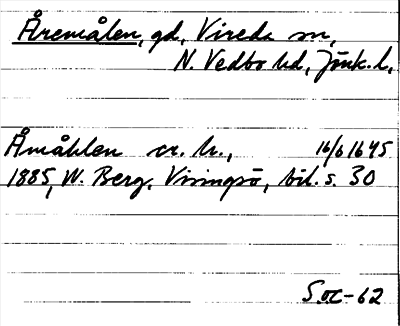 Åremålen, gd, Vireda sn,
N. Vedbo hd, Jönk. l.
Åmåhlen cr. h., 16/6 1645
1885, W. Berg, Visingsö, bil. s. 30
S.oc-62